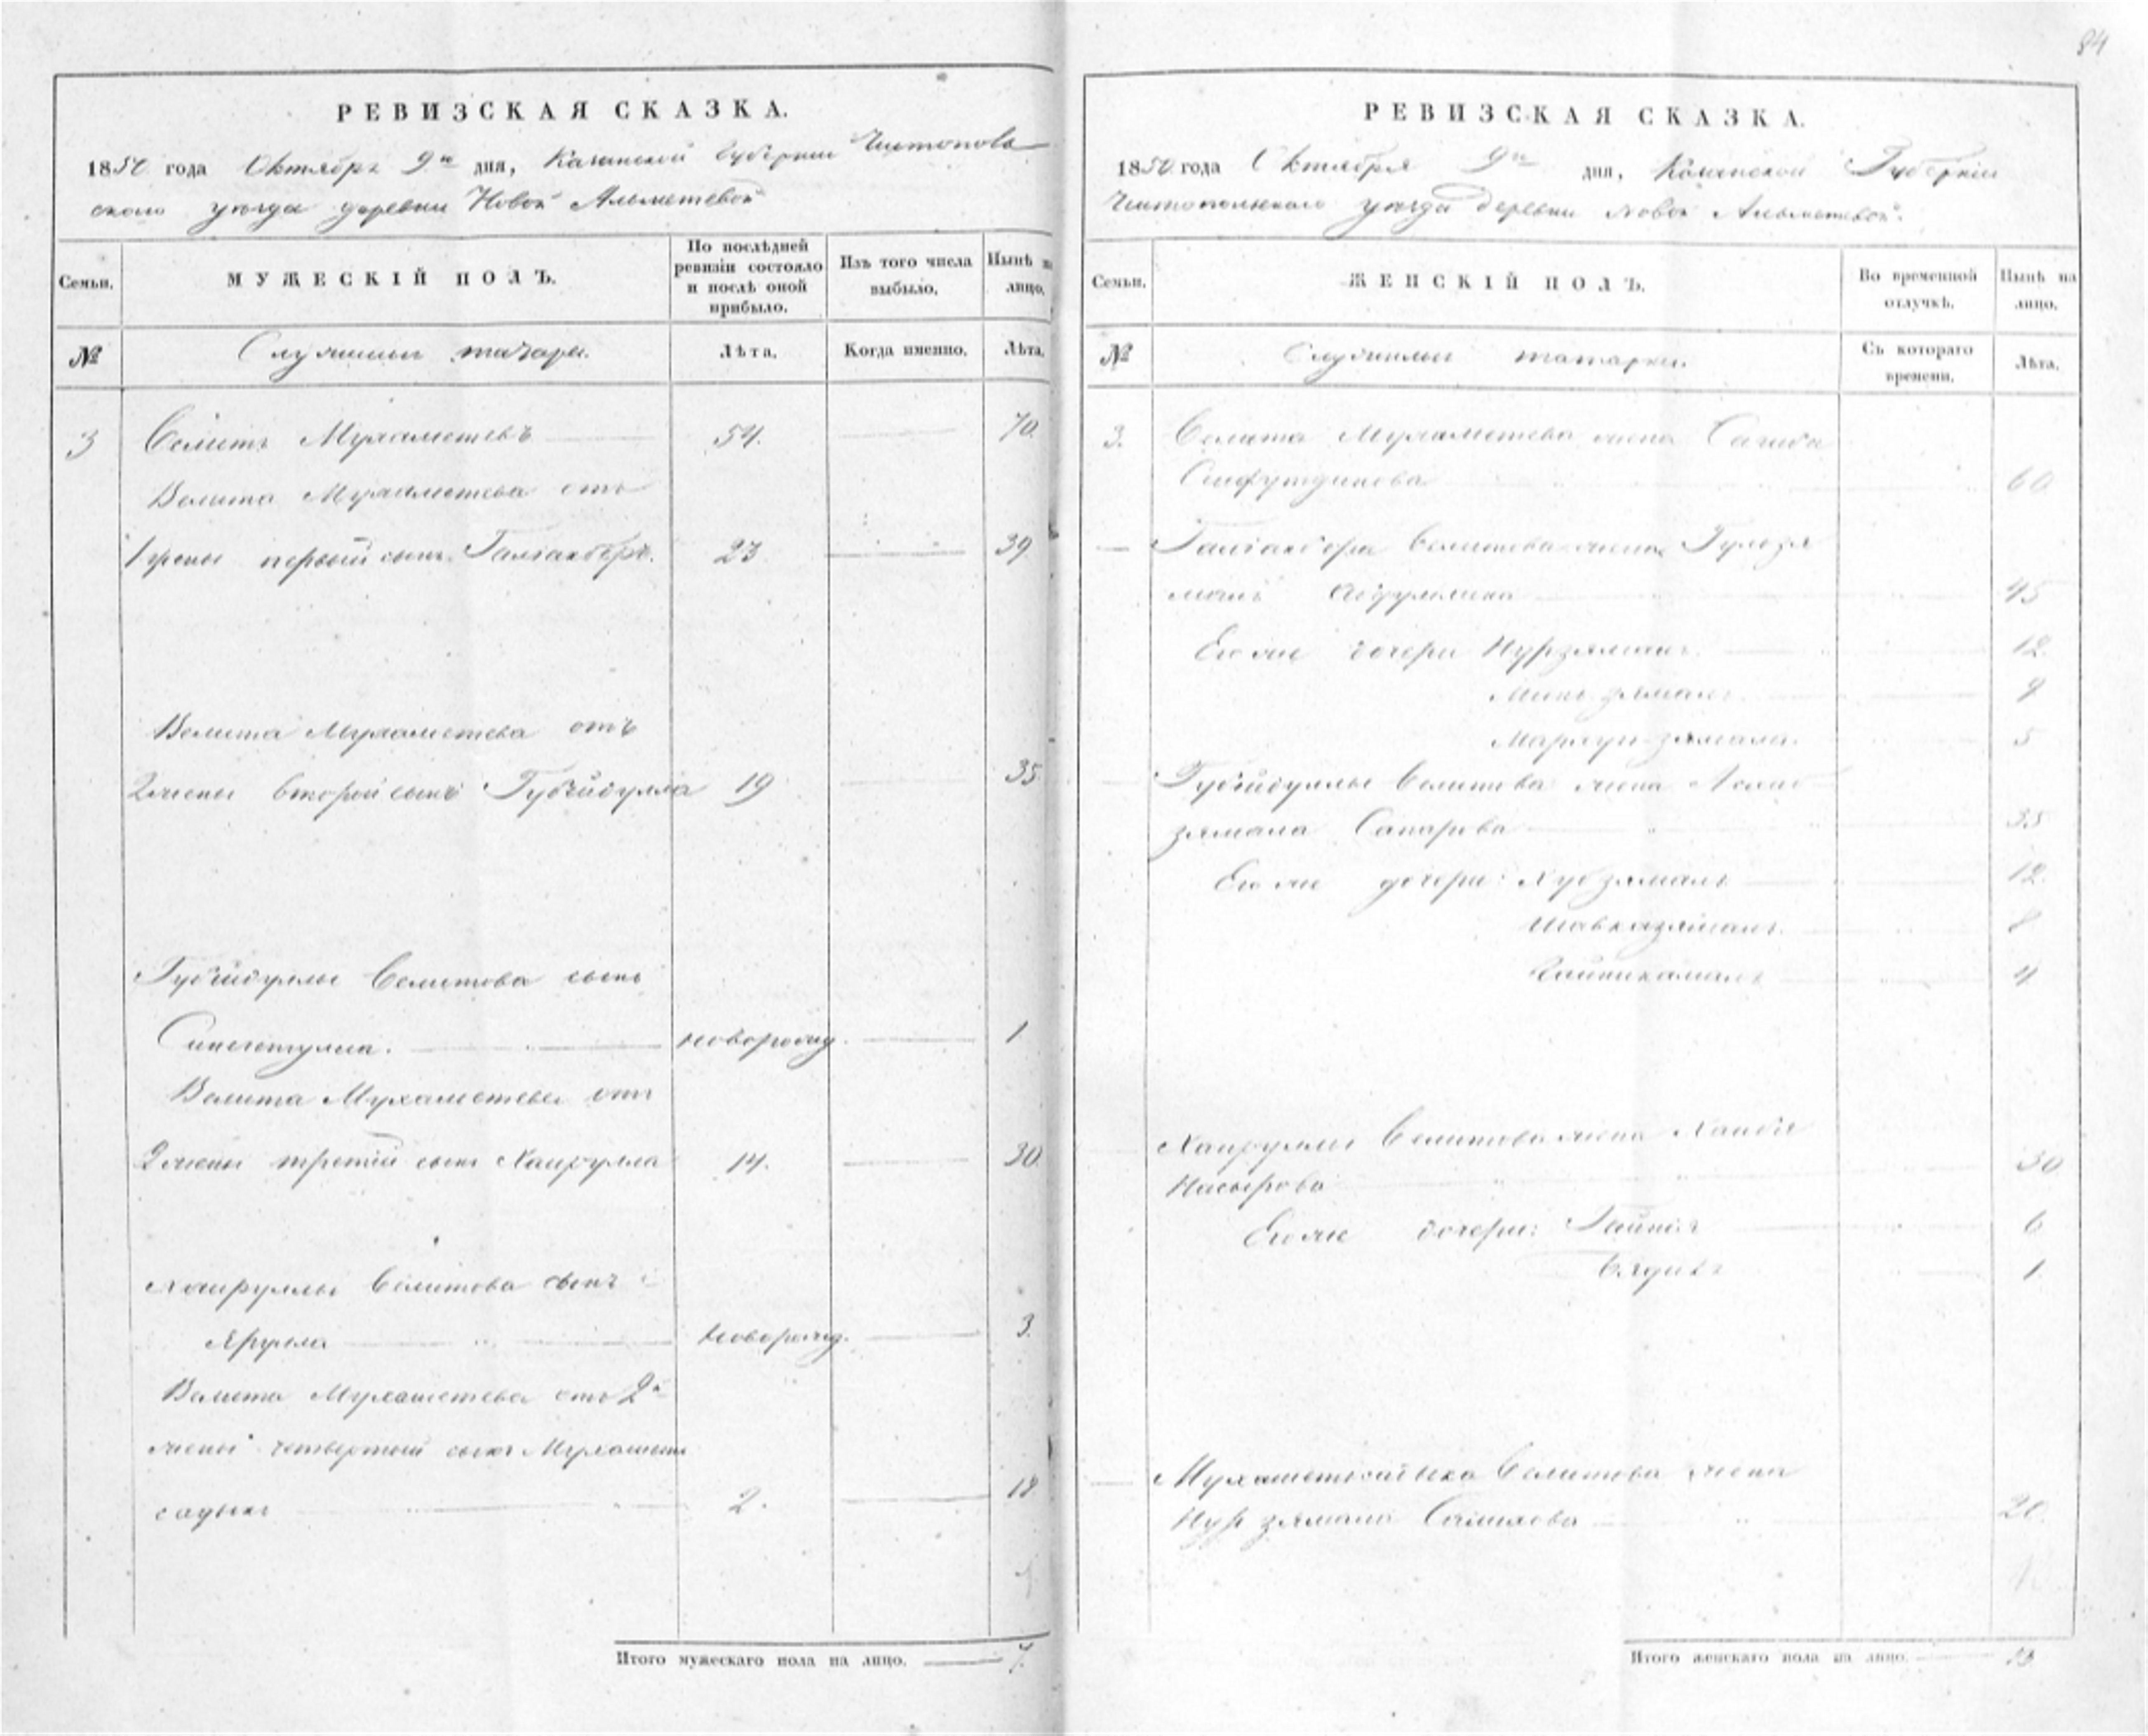 84
РЕВИЗСКАЯ СКАЗКА.
1850 года Октября 9го дня, Казанской Губернии Чистополь
ского уезда деревни Новой Альметевой
Семьи.
МУЖЕСКІЙ ПОЛЪ.
По послѣдней ревизіи состояло и послѣ оной прибыло.
Изъ того числа выбыло.
Нынѣ на лицо.
№
Служилыи татары.
Лѣта.
Когда именно.
Лѣта.
3 Велитъ Мухаметевъ 54. 70.
Велита Мухаметева отъ
1 жены первый сынъ Галіакберъ. 23 39
Велита Мухаметева отъ
2 жены второй сынъ Губейдулла 19 35
Губейдуллы Велитова сынъ
новорожд. 1
Велита Мухаметева отъ
2 жены третій сынъ Хайрулла 14. 30.
Хайруллы Велитова сынъ
Ярулла новорожд. 3.
Велита Мухаметева отъ 2й
жены четвертый сынъ Мухаметъ
садыкъ 2. 18
Итого мужескаго пола на лицо. 7.
РЕВИЗСКАЯ СКАЗКА.
1850 года Октября 9го дня, Казанской Губерніи
Чистопольского уезда деревни Новой Альметевой.
Семьи.
ЖЕНСКІЙ ПОЛЪ.
Во временной отлучкѣ.
Нынѣ на лицо.
№
Служилыи татарки.
Съ котораго времени.
Лѣта.
3. Велита Мухаметева жена Сагида
Сейфутдинова 60
Галіакбера Велитова жена Гульзя
малъ 45
Его же дочери Нурзямалъ. 12.
Миньзямалъ. 9
зямалъ. 5
Губейдуллы Велитова жена
зямала Сапарова 35
Его же дочери: Хубзямалъ 12.
Шавказямалъ. 8
4
Хайруллы Велитова жена
Насырова 30
Его же дочери: 6
1.
Мухаметьсадыка Велитова жена
Нурзямала 20.
Итого женскаго пола на лицо. 13